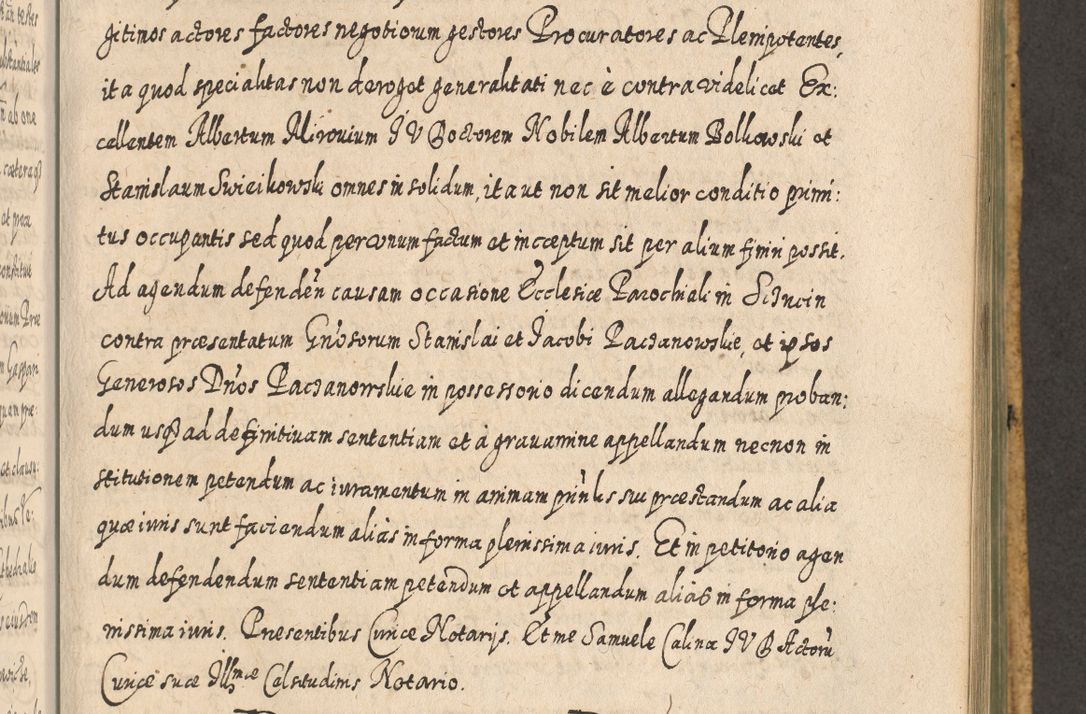 gitimos actores factores negotiorum gestores Procuratores ac Plenipotentes,
ita quod specialitas non deroget generalitati nec è contra videlicet Ex:
cellentem Albertum Mirovium IV Doctorem Nobilem Albertum Bolkowski et
Stanislaum Swieikowski omnes in solidum, ita ut non sit melior conditio primi:
tus occupantis sed quod per unum factum et incœptum sit per alium finiri possit.
Ad agendum defenden̄ causam occasione Ecclesiæ Parochiali in
contra præsentatum Gn̄rosorum Stanislai et Jacobi Paczanowskie, et ipsos
Generosos Dn̄os Paczanowskie in possessorio dicendum allegandum proban:
dum usq̨ ad definitivam sententiam et à gravamine appellandum necnon in
stitutionem petendum ac iuramentum in animam prin̄lis sui præstandum ac alia
quæ iuris sunt faciendum aliàs in forma plenissima iuris. Et in petitorio agen
dum defendendum sententiam petendum et appellandum aliàs in forma ple:
nissima iuris. Presentibus Curiæ Notarijs. Et me Samuele Calina IVD Actorū
Curiæ suæ Illmæ Celsitudinis Notario.